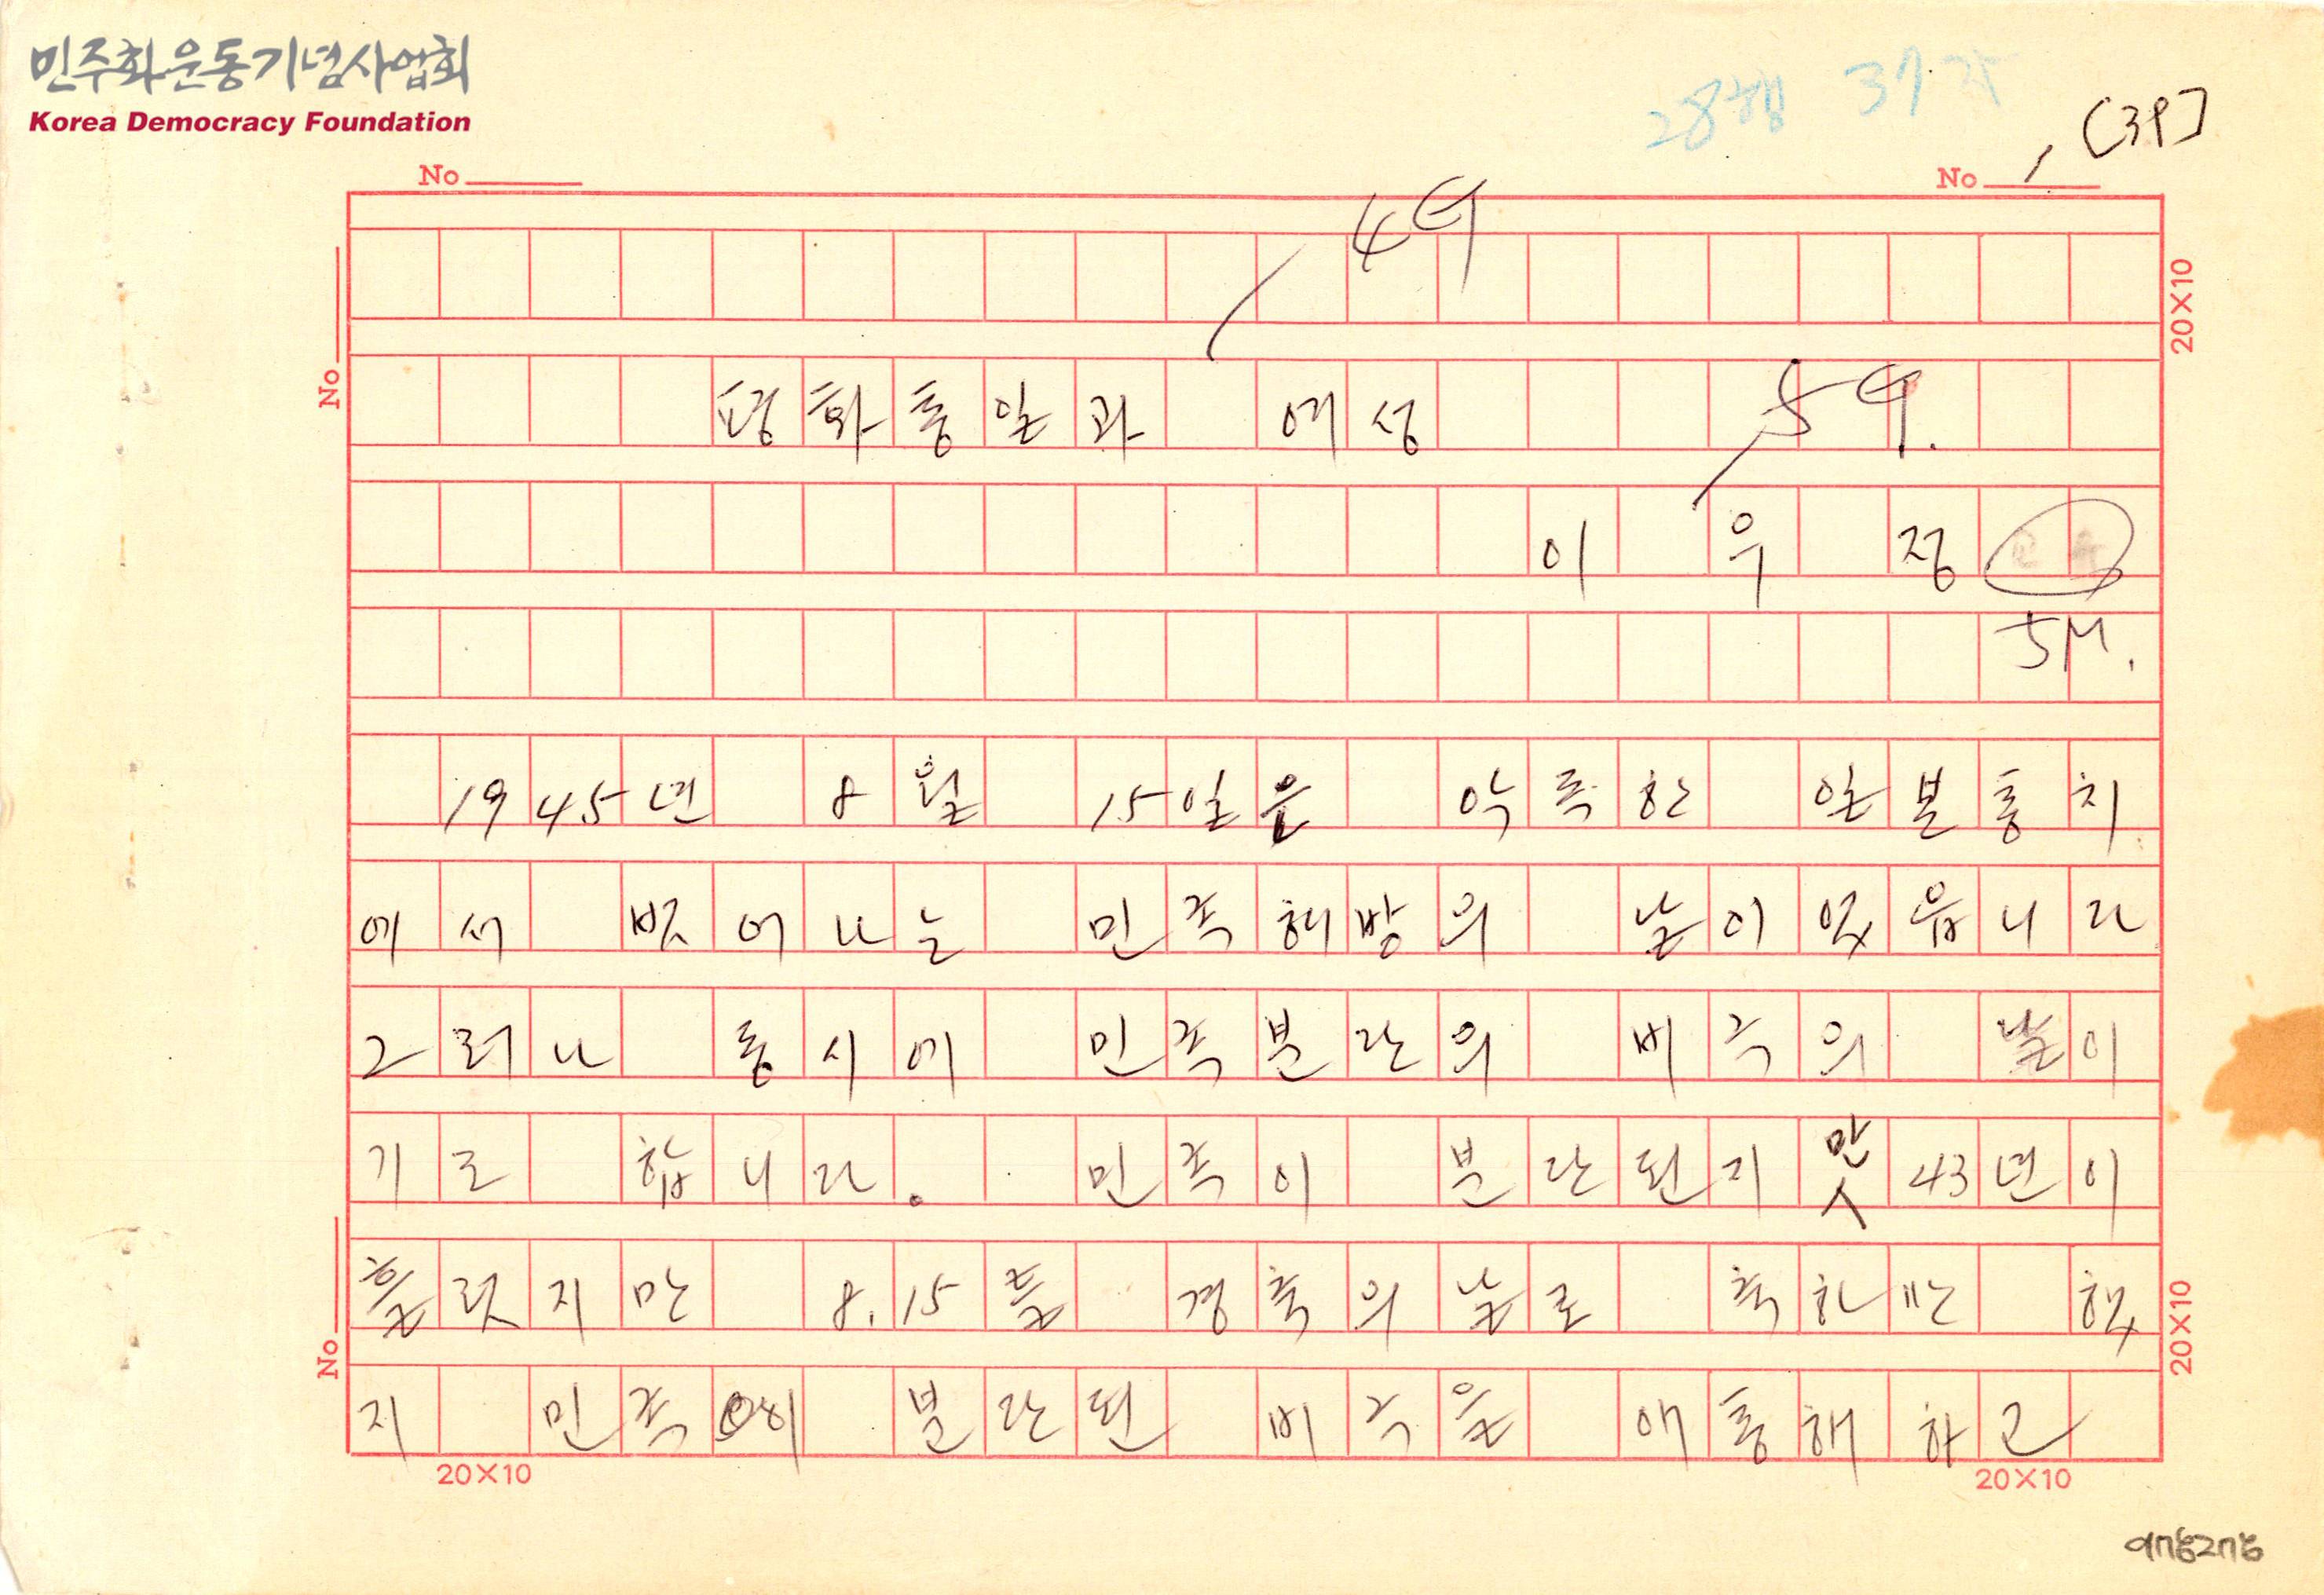 민주화운동기념사업회
Korea Democracy Foundation
28행 37자
[3P]
No
No 1
20×10
No
평화통일과 여성
이 우 정
5M.
1945년 8월 15일은 악독한 일본통치
에서 벗어나는 민족해방의 날이었읍니다
그러나 동시에 민족분단의 비극의 날이
기도 합니다. 민족이 분단된지 만 43년이
흘렀지만 8.15를 경축의 날로 축하만 했
지 민족이 분단된 비극을 애통해 하고
No
20×10
20×10
20×10